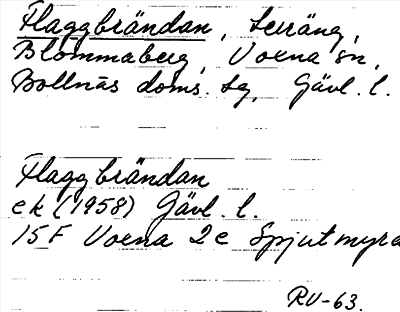 Flaggbrändan, terräng,
Blommaberg, Voxna sn,
Bollnäs doms. sg, Gävl. l.
Flaggbrändan
ek (1958) Gävl. l.
15F Voxna 2c Spjutmyra
RU-63.